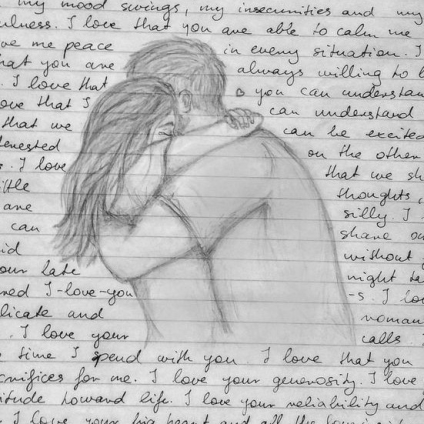 my mood swings, my insecurities and my
ulness. I love that you are able to calm me
ve me peace in every situation. I
hat you are always willing to
. I love that you can understan
ove that I can understand
that we can be excited
terested on the other
s. I love that we sh
ttle thoughts,
are silly. I
can share ou
id without
our late night ta
red I-love-you -s. I lo
licate and roman
. I love your calls
time I spend with you I love that you
crifices for me. I love your generosity. I love
titude toward life. I love your reliability and
I love your big heart and all the